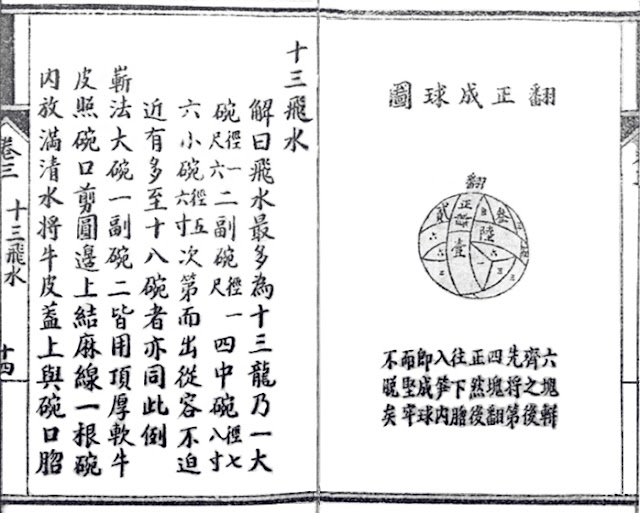 翻正成球圖
翻
正
貳
陸
壹
六塊輳
齊之後
先將第
四塊翻
正然後
往下
入笋内
即成球
而堅牢
不脫矣
十三飛水
解曰飛水最多為十三龍乃一大
碗徑一尺六二副碗徑一尺四中碗徑七八寸
六小碗徑五六寸次第而出從容不迫
近有多至十八碗者亦同此例
嶄法大碗一副碗二皆用頂厚軟牛
皮照碗口剪圓邊上結麻線一根碗
内放滿清水將牛皮蓋上與碗口
卷三 十三飛水 十四